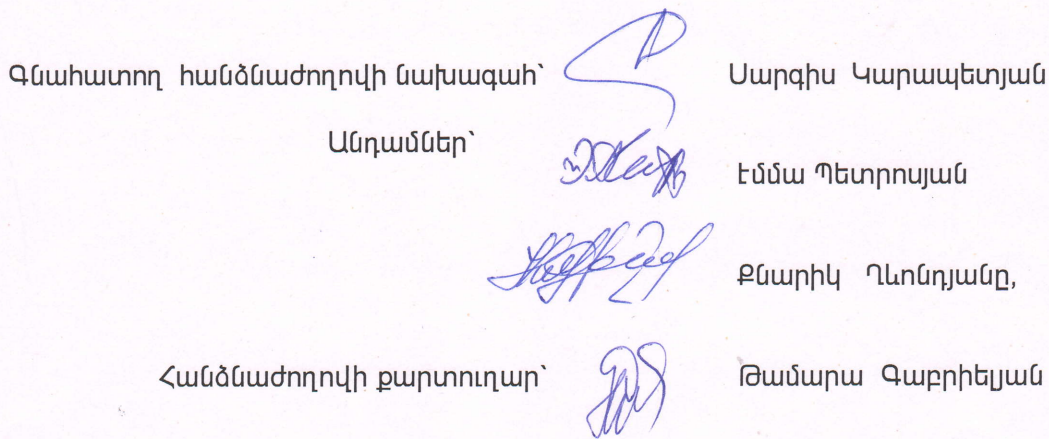 Գնահատող հանձնաժողովի նախագահ՝ Սարգիս Կարապետյան
Անդամներ՝
Էմմա Պետրոսյան
Քնարիկ Ղևոնդյանը,
Հանձնաժողովի քարտուղար՝ Թամարա Գաբրիելյան